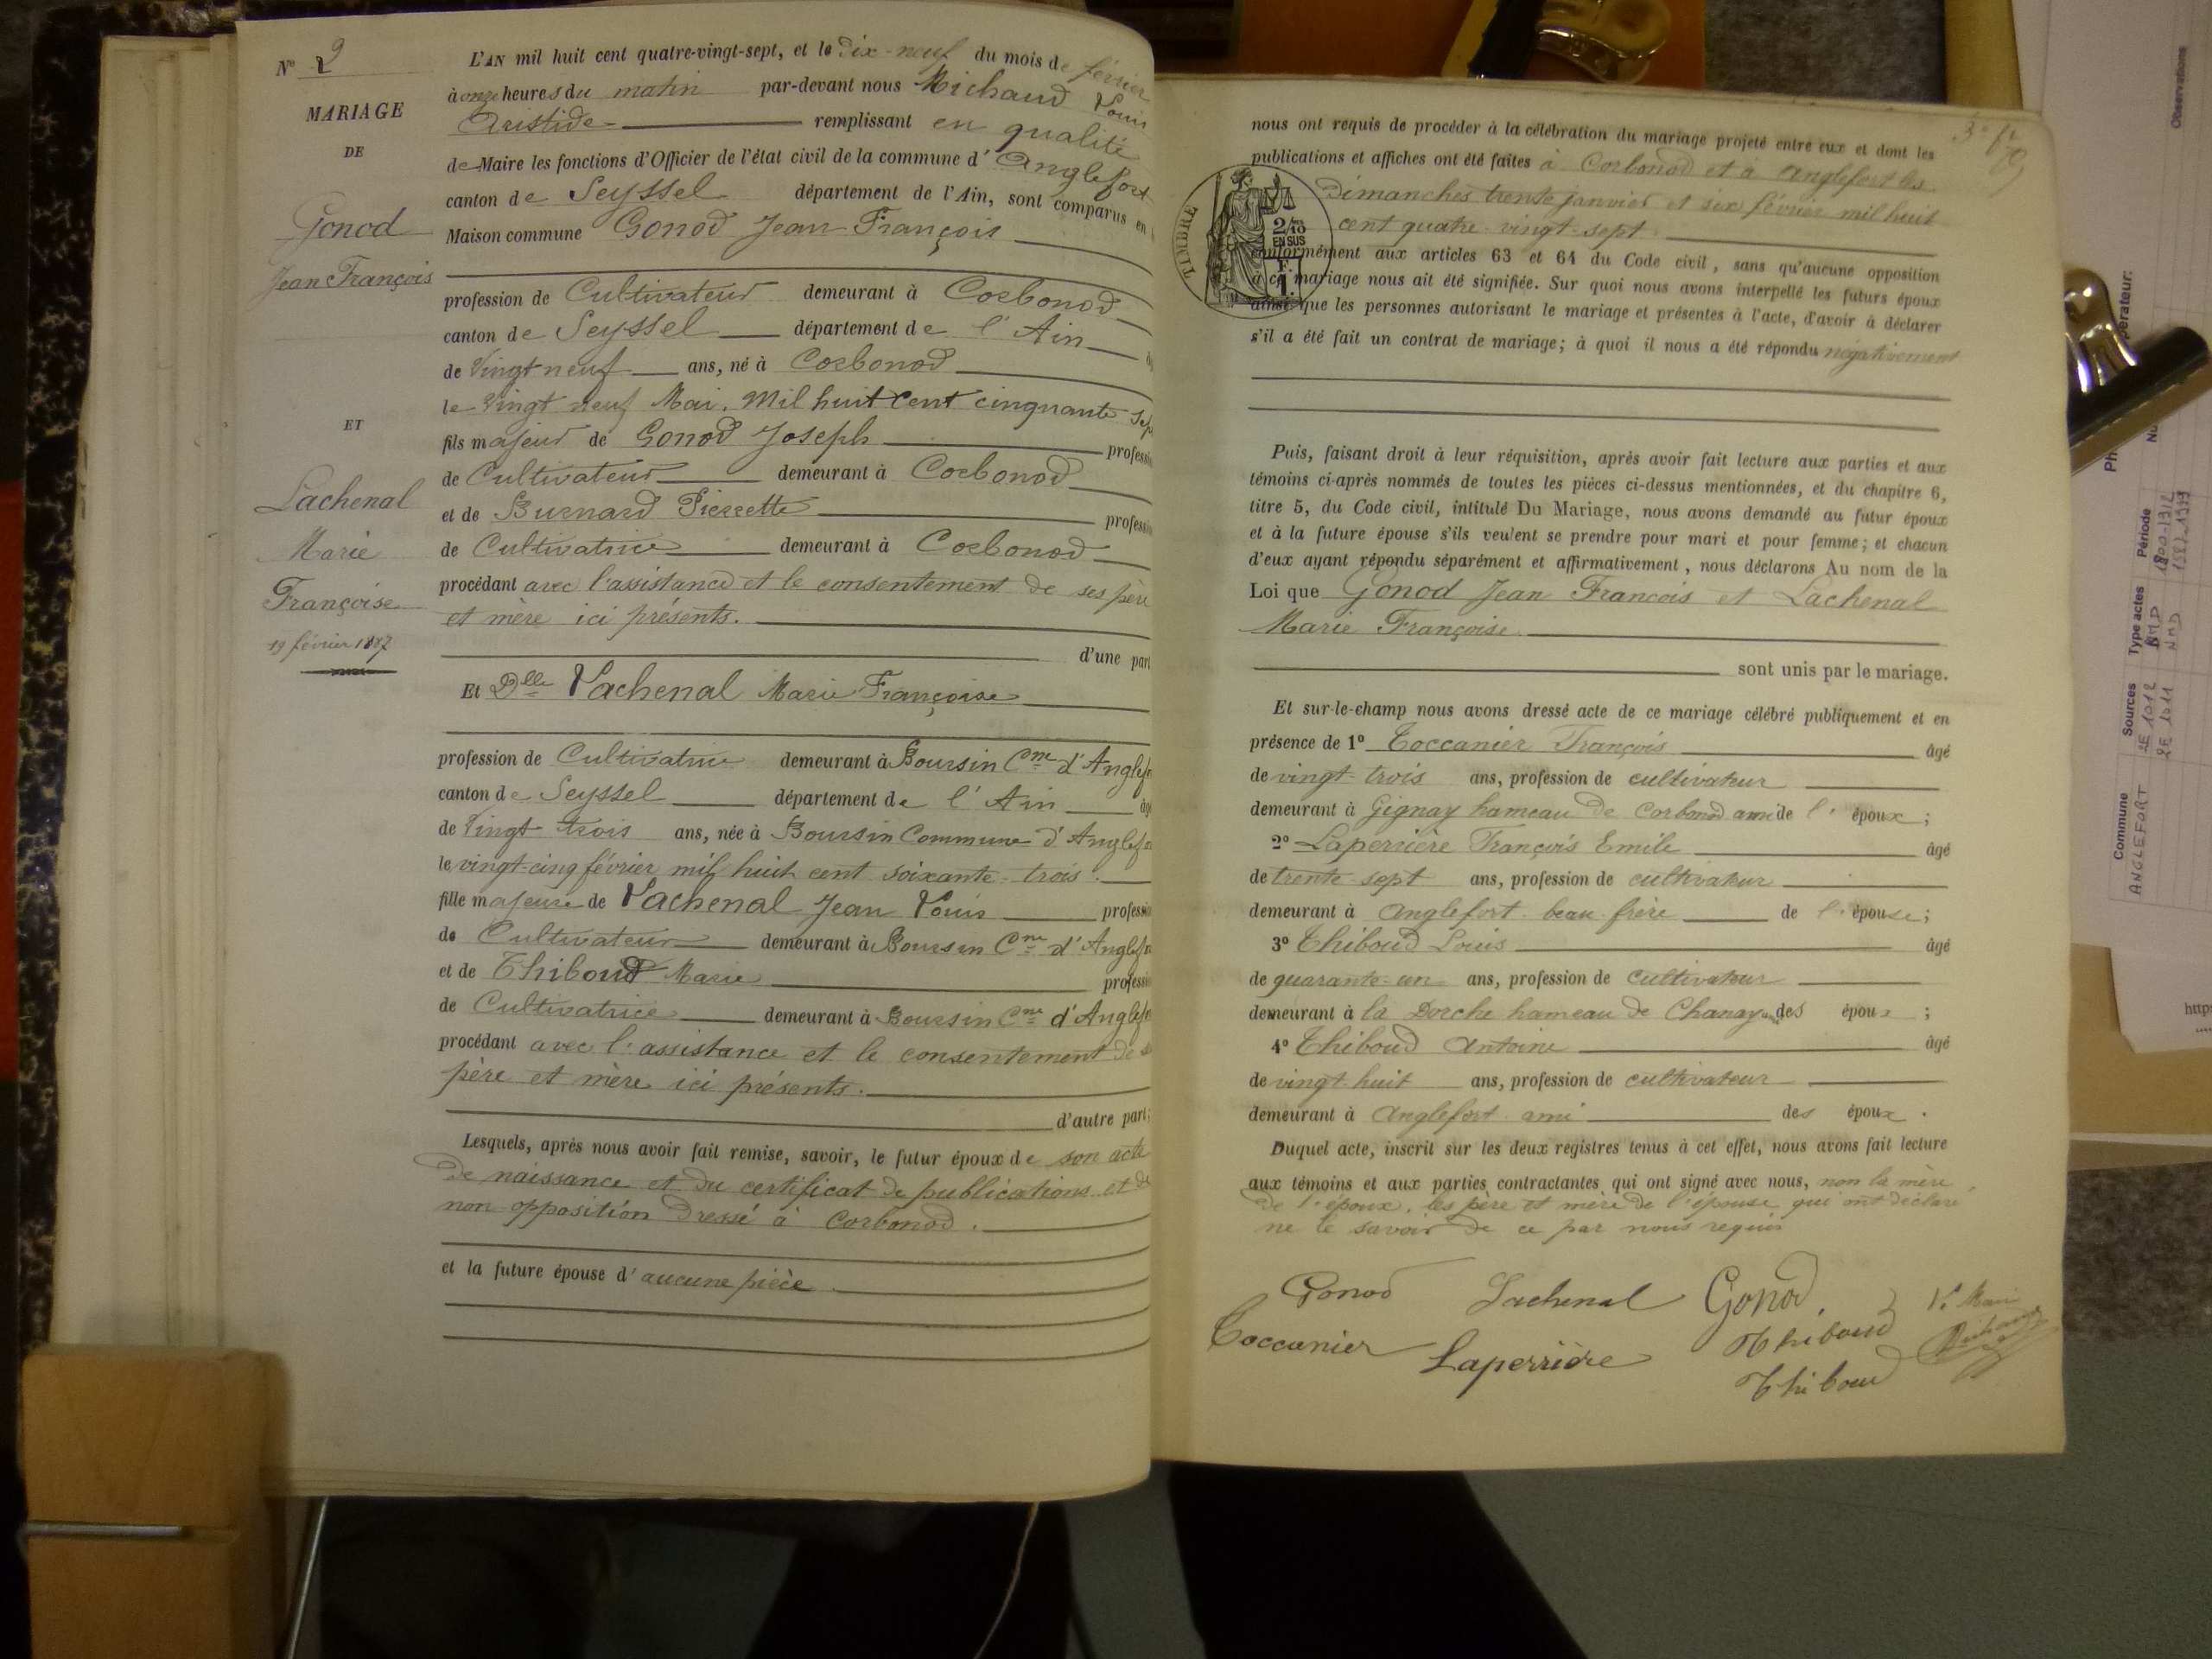 N° 2
MARIAGE
DE
Gonod
Jean François
ET
Lachenal
Marie
Françoise
19 février 1887
L'AN mil huit cent quatre-vingt-sept, et le Dix-neuf du mois de février
à onze heures du matin par-devant nous Michaud Louis
Aristide remplissant en qualité
de Maire les fonctions d'Officier de l'état civil de la commune d'Anglefort
canton de Seyssel département de l'Ain, sont comparus en
Maison commune Gonod Jean François
profession de Cultivateur demeurant à Corbonod
canton de Seyssel département de l'Ain
de Vingt neuf ans, né à Corbonod
le Vingt neuf Mai, Mil huit Cent cinquante sept
fils majeur de Gonod Joseph profession
de Cultivateur demeurant à Corbonod
et de Burnard Pierrette profession
de Cultivatrice demeurant à Corbonod
procédant avec l'assistance et le consentement de ses père
et mère ici présents.
d'une part
Et Dlle Lachenal Marie Françoise
profession de Cultivatrice demeurant à Boursin Cne d'Anglef
canton de Seyssel département de l'Ain âgé
de Vingt trois ans, née à Boursin Commune d'Anglefo
le vingt-cinq février mil huit cent soixante-trois.
fille majeure de Lachenal Jean Louis profession
de Cultivateur demeurant à Boursin Cne d'Anglef
et de Thiboud Marie profession
de Cultivatrice demeurant à Boursin Cne d'Anglef
procédant avec l'assistance et le consentement de
père et mère ici présents.
d'autre part;
Lesquels, après nous avoir fait remise, savoir, le futur époux de son acte
de naissance et du certificat de publications et de
non opposition dressé à Corbonod.
et la future épouse d'aucune pièce.
nous ont requis de procéder à la célébration du mariage projeté entre eux et dont les
publications et affiches ont été faites à Corbonod et à Anglefort les
dimanches trente janvier et six février mil huit
cent quatre-vingt-sept
TIMBRE
2/10
EN SUS
conformément aux articles 63 et 64 du Code civil, sans qu'aucune opposition
à ce mariage nous ait été signifiée. Sur quoi nous avons interpellé les futurs époux
ainsi que les personnes autorisant le mariage et présentes à l'acte, d'avoir à déclarer
s'il a été fait un contrat de mariage; à quoi il nous a été répondu négativement
Puis, faisant droit à leur réquisition, après avoir fait lecture aux parties et aux
témoins ci-après nommés de toutes les pièces ci-dessus mentionnées, et du chapitre 6,
titre 5, du Code civil, intitulé Du Mariage, nous avons demandé au futur époux
et à la future épouse s'ils veulent se prendre pour mari et pour femme; et chacun
d'eux ayant répondu séparément et affirmativement, nous déclarons Au nom de la
Loi que Gonod Jean François et Lachenal
Marie Françoise
sont unis par le mariage.
Et sur-le-champ nous avons dressé acte de ce mariage célébré publiquement et en
présence de 1° Toccanier François âgé
de vingt-trois ans, profession de cultivateur
demeurant à Gignay hameau de Corbonod ami de l'époux;
2° Laperrière François Emile âgé
de trente-sept ans, profession de cultivateur
demeurant à Anglefort beau-frère de l'épouse;
3° Thiboud Louis âgé
de quarante-un ans, profession de cultivateur
demeurant à la Dorche hameau de Chanay des époux;
4° Thiboud Antoine âgé
de vingt-huit ans, profession de cultivateur
demeurant à Anglefort ami des époux.
Duquel acte, inscrit sur les deux registres tenus à cet effet, nous avons fait lecture
aux témoins et aux parties contractantes qui ont signé avec nous, non la mère
de l'époux, les père et mère de l'épouse qui ont déclaré
ne le savoir de ce par nous requis
Gonod Lachenal Gonod
Toccanier Laperrière Thiboud
Thiboud
Observations
Commune Sources Type actes Période
ANGLEFORT 2E 1012 BMD
2E 1011 NMD